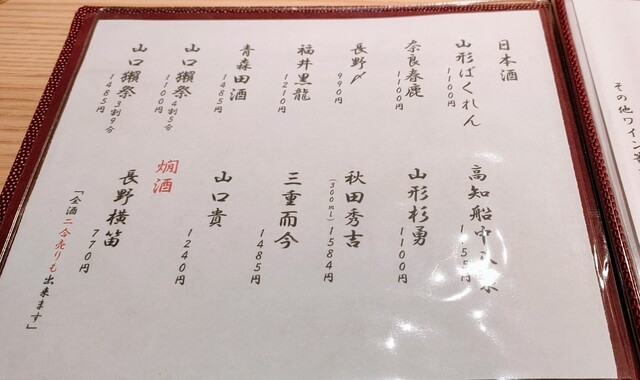 日本酒
山形ばくれん
1100円
奈良春鹿
1100円
長野〆
990円
福井黒龍
1210円
青森田酒
1485円
山口獺祭4割5分
1100円
山口獺祭3割9分
1485円
高知船中八策
山形杉勇
1100円
秋田秀吉
(300ml)1584円
三重而今
1485円
山口貴
1240円
燗酒
長野横笛
770円
「全酒二合売りも出来ます」
その他ワイン